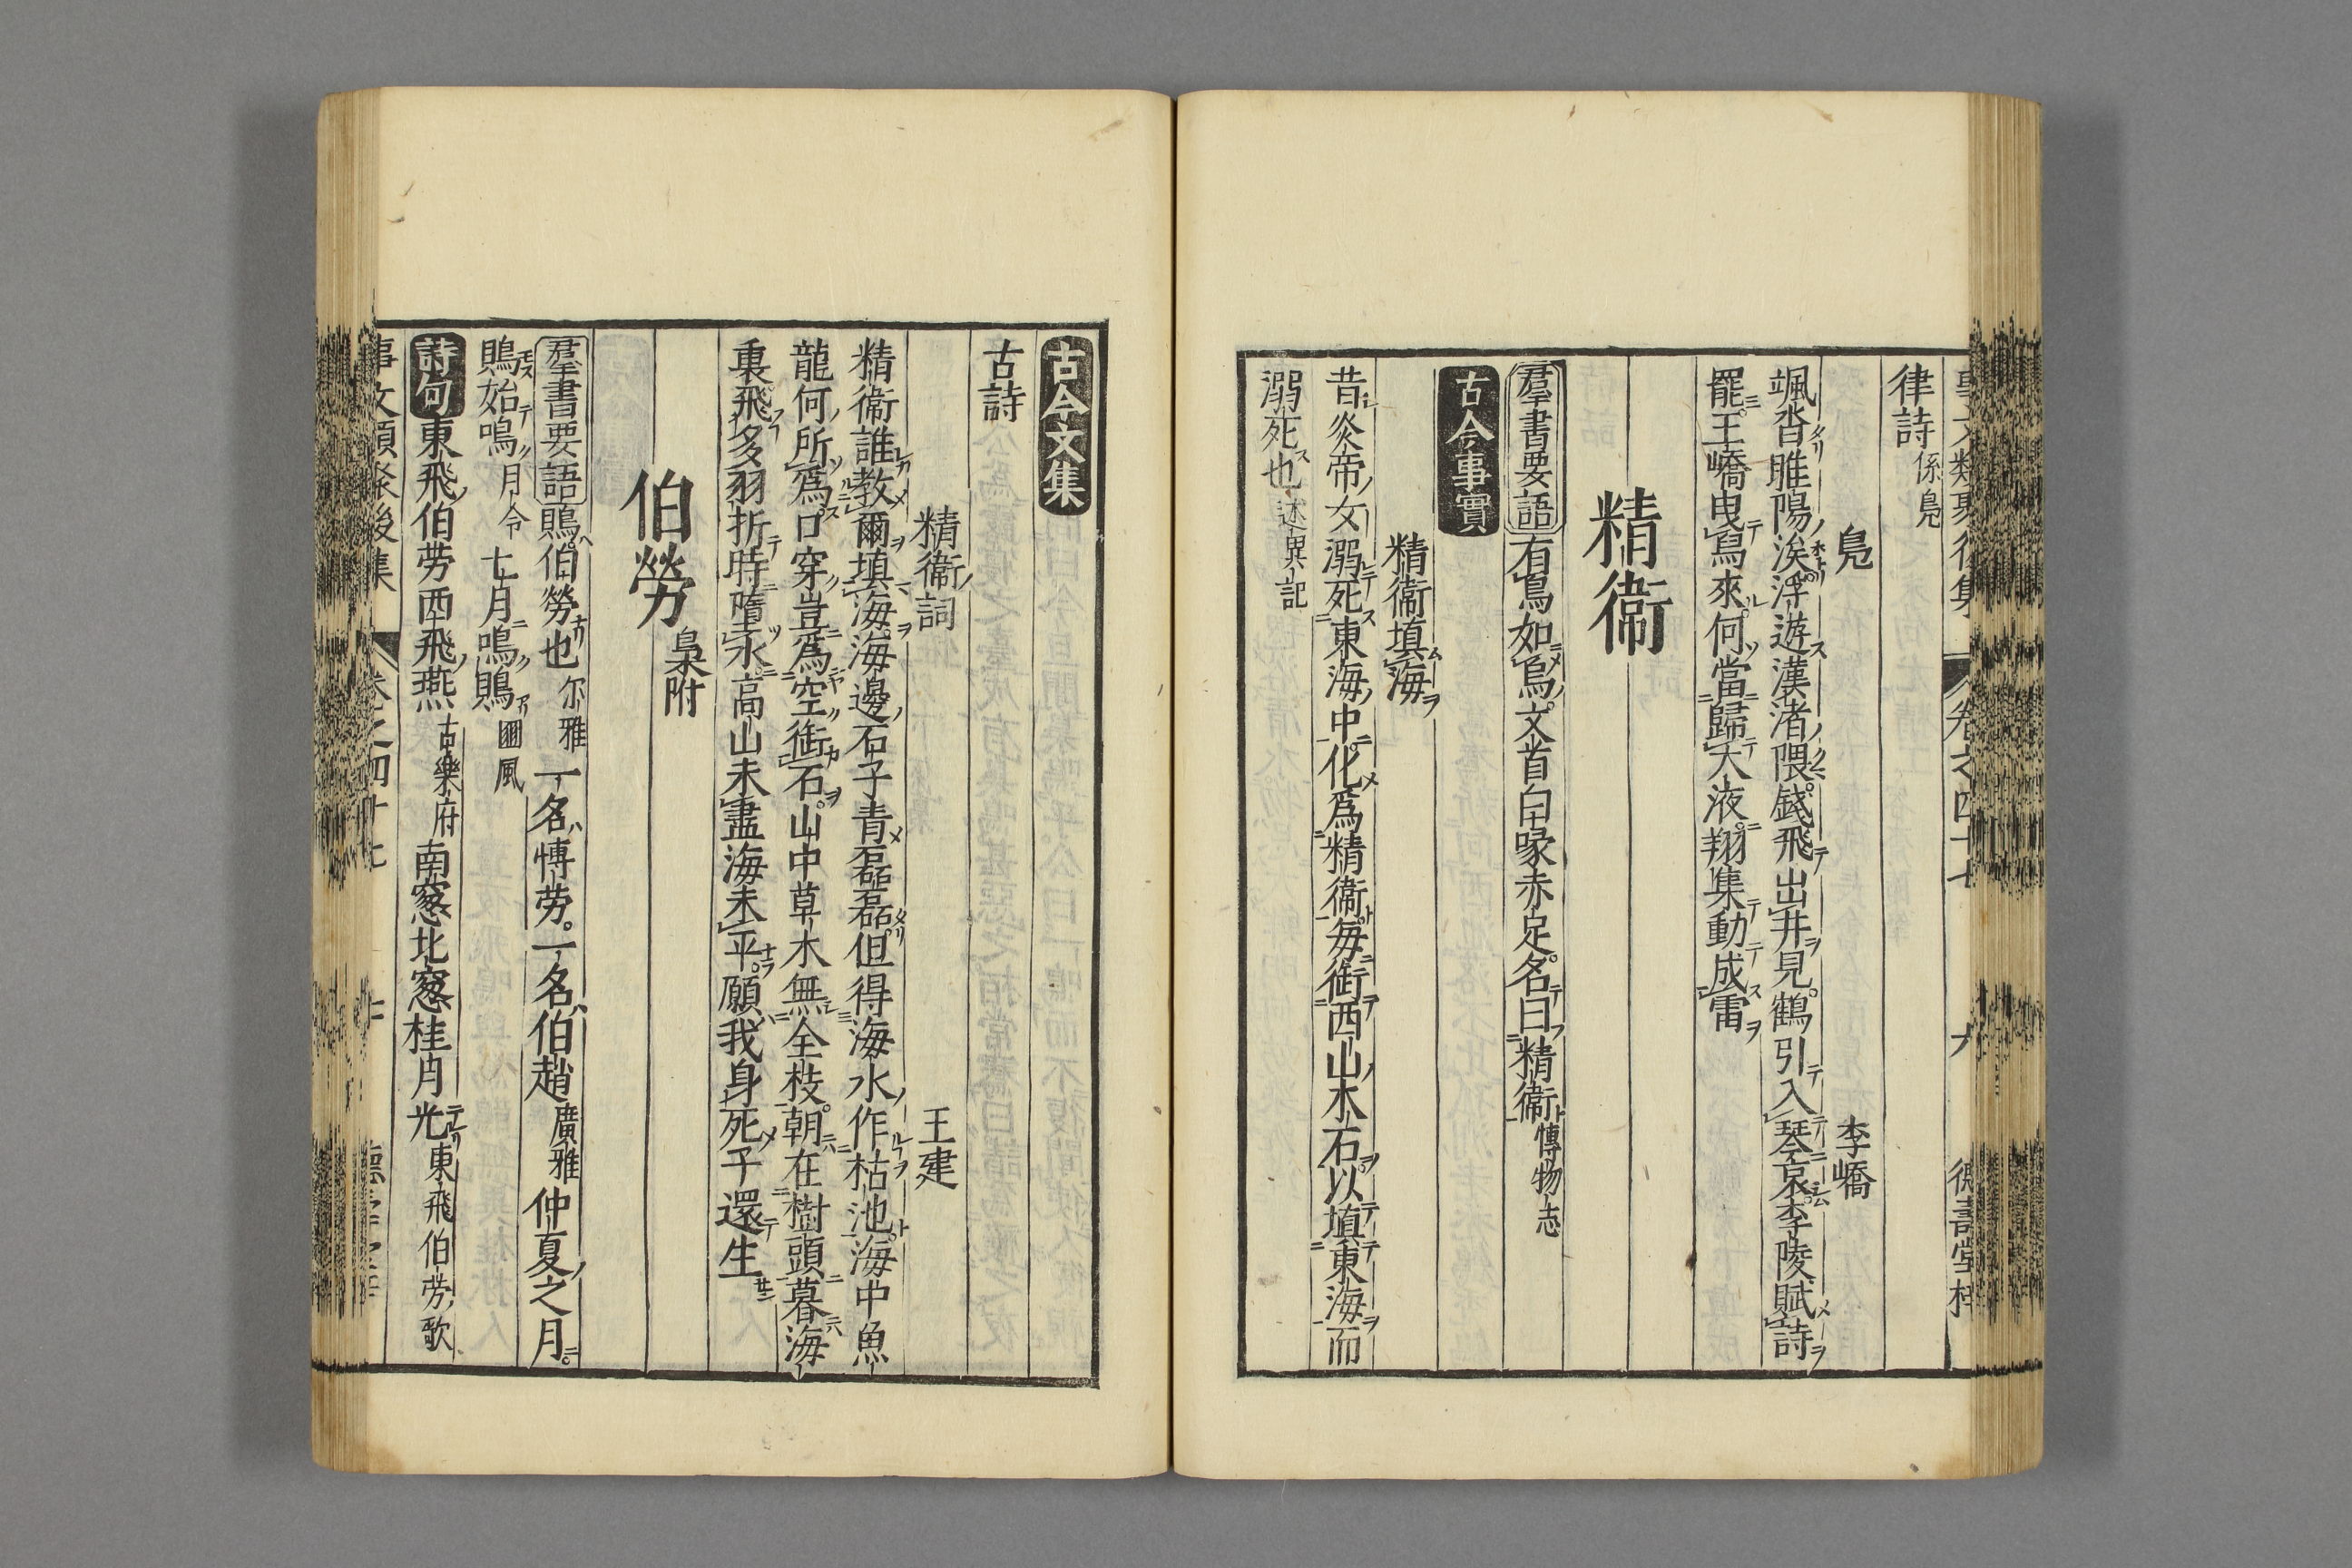 律詩 係鳧
鳧 李嶠
颯沓睢陽涘浮遊漢渚隈錢飛出井見鶴引入琴哀李陵賦詩
罷王嶠曳舄來何當歸大液翔集動成雷
精衞
羣書要語 有鳥如烏文首白喙赤足名曰精衞 博物志
古今事實
精衞填海
昔炎帝女溺死東海中化爲精衞每銜西山木石以塡東海而
溺死也 述異記
古今文集
古詩
精衞詞 王建
精衞誰教爾填海海邊石子青磊磊但得海水作枯池海中魚
龍何所爲口穿豈爲空銜石山中草木無全枝朝在樹頭暮海
裏飛多羽折時墮水高山未盡海未平願我身死子還生
伯勞 梟附
羣書要語 鵙伯勞也 尔雅 一名博劳一名伯趙 廣雅 仲夏之月
鵙始鳴 月令 七月鳴鵙 豳風
詩句 東飛伯劳西飛燕 古樂府 南窓北窓桂月光 東飛伯劳歌